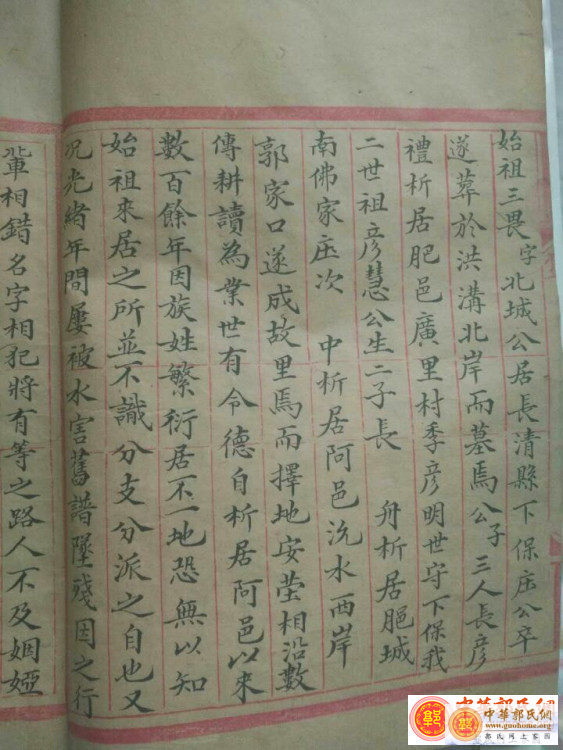 始祖三畏字北城公居長清縣下保庄公卒
遂葬於洪溝北岸而墓焉公子三人長彥
禮析居肥邑廣里村季彥明世守下保我
二世祖彥慧公生二子長 舟析居肥城
南佛家庄次 中析居阿邑汶水西岸
郭家口遂成故里焉而擇地安塋相沿數
傳耕讀為業世有令德自析居阿邑以來
數百餘年因族姓繁衍居不一地恐無以知
始祖來居之所並不識分支分派之自也又
況光緒年間屢被水害舊譜墜殘因之行
輩相錯名字相犯將有等之路人不及姻婭
中華郭氏網
中華郭氏網
www.guohome.org
郭氏网上家园